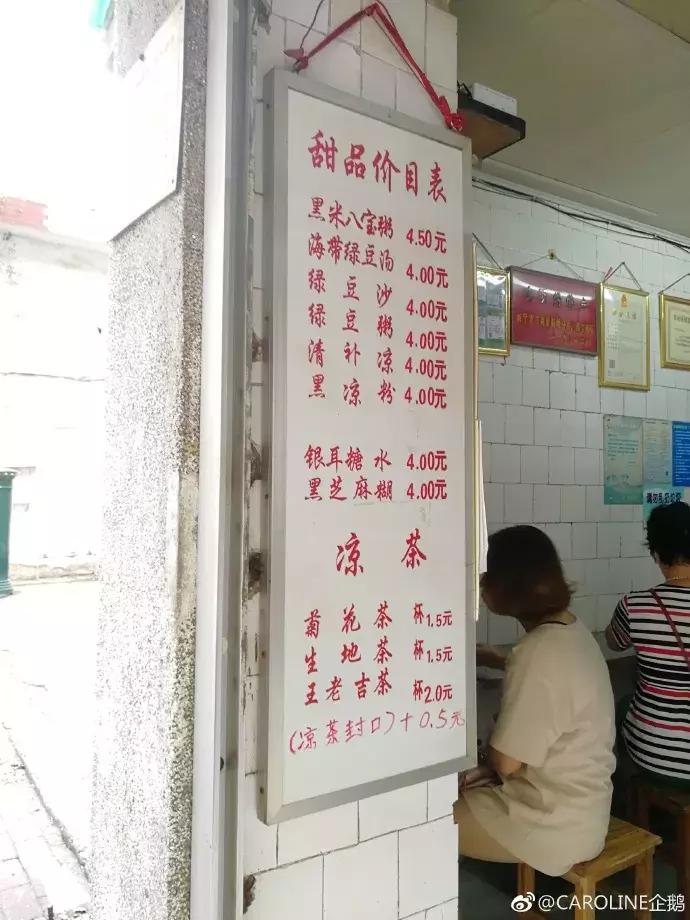 甜品价目表
黑米八宝粥 4.50元
海带绿豆汤 4.00元
绿豆沙 4.00元
绿豆粥 4.00元
清补凉 4.00元
黑凉粉 4.00元
银耳糖水 4.00元
黑芝麻糊 4.00元
凉茶
菊花茶 杯1.5元
生地茶 杯1.5元
王老吉茶 杯2.0元
(凉茶封口)+0.5元
@CAROLINE企鹅